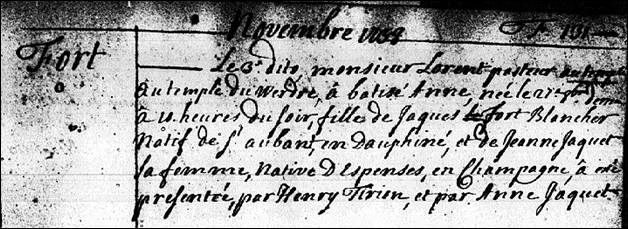 Novembre 1708
Fort
Le 3e dito, monsieur Lorent pasteur
au temple du Werdre, à batisé Anne, née le 27e
à 10 heures du soir, fille de Jaques le Fort Blancher
Natif de St auban, en Dauphiné, et de Jeanne Jaquet
sa femme, Native D'Espenses, en Champagne, à esté
presentée, par Henry Tirion, et par Anne Jaquet